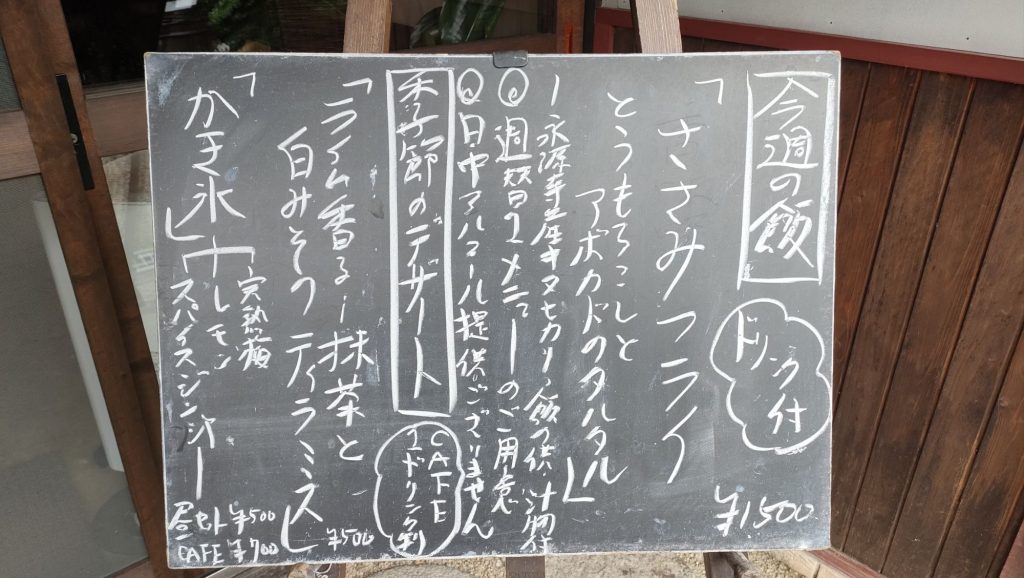 今週の飯
ドリンク付
¥1500
「ささみフライ
とうもろこしと
アボカドのタルタル」
永源寺産キヌヒカリ 飯 供 汁物付
◎週替1メニューのご用意
◎日中アルコール提供ございません
季節のデザート
CAFE
1ドリンク割
「ライム香るー抹茶と
白みそのティラミス」
¥500
「かき氷」
完熟梅
レモン
スパイスジンジャー
昼セット¥500
CAFE ¥700